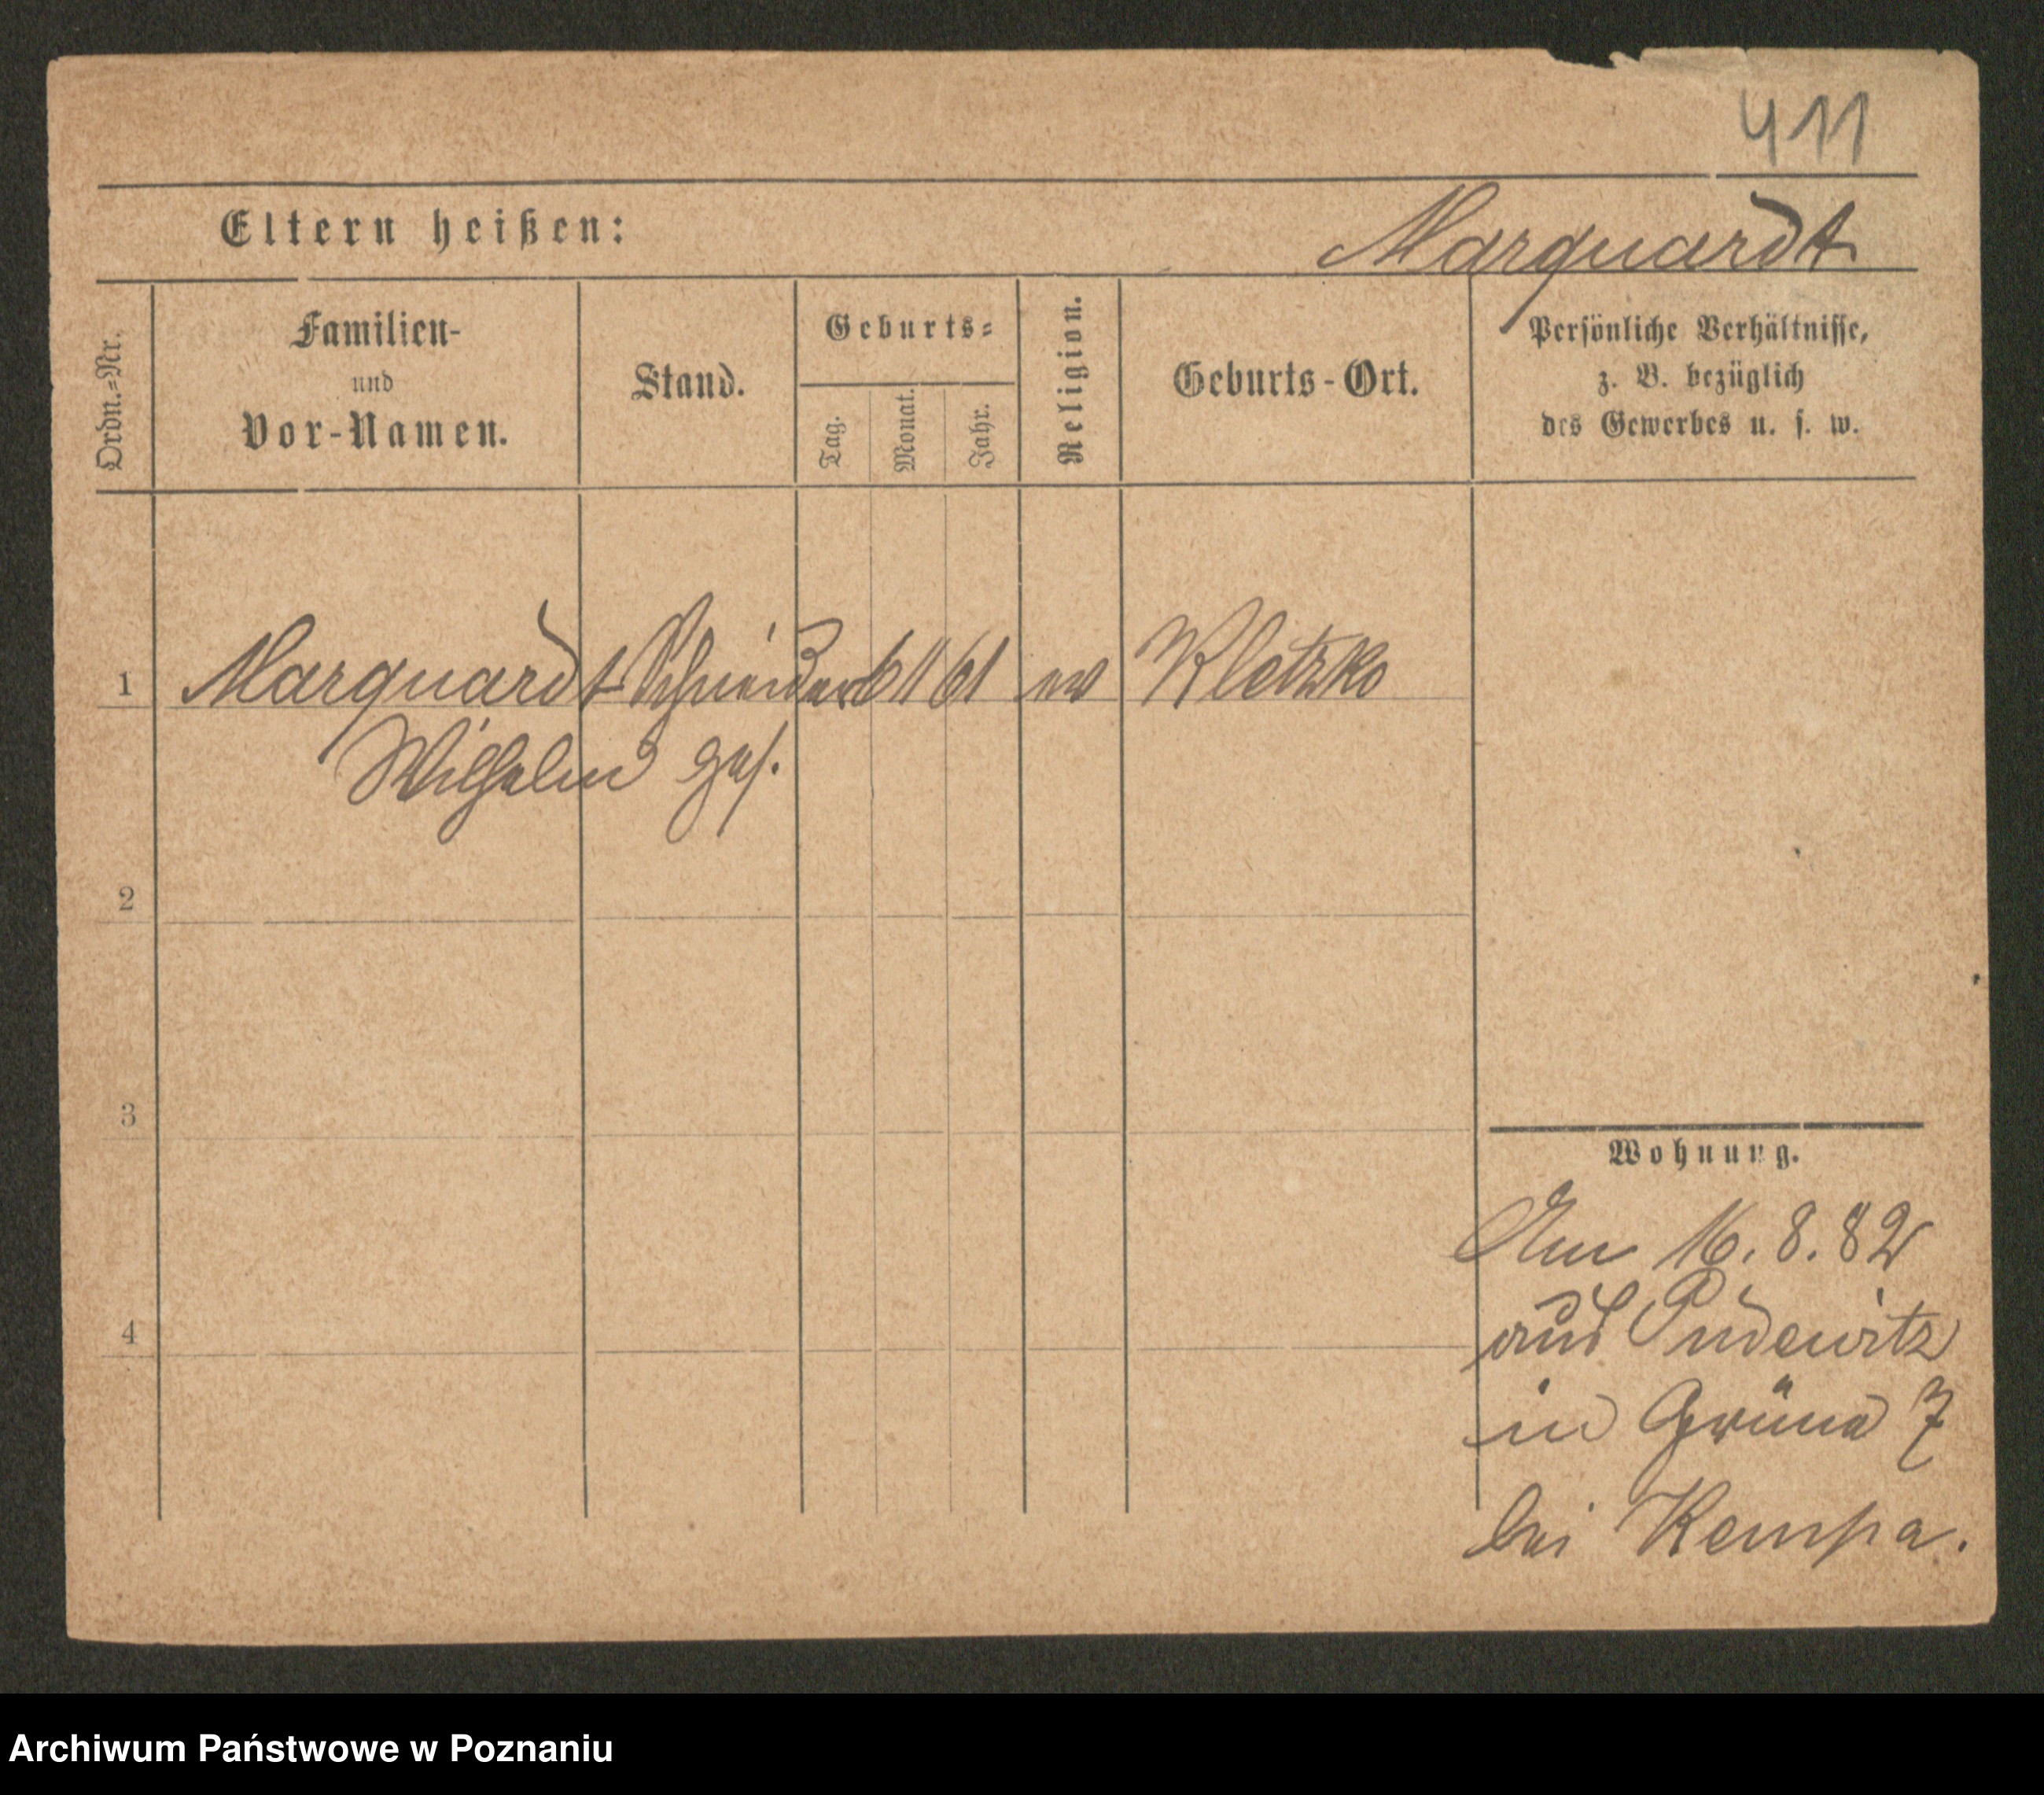 411
Eltern heißen: Marquardt
Ordn.=Nr.
Familien-
und
Vor-Namen.
Stand.
Geburts=
Tag.
Monat.
Jahr.
Religion.
Geburts-Ort.
Persönliche Verhältnisse,
z. B. bezüglich
des Gewerbes u. s. w.
1 Marquardt Schneider 6 11 61 ev Kletzko
Wilhelm ges.
2
3
4
Wohnung.
Am 16. 8. 82
aus Pudewitz
in Grüne 7
bei Kempa.
Archiwum Państwowe w Poznaniu